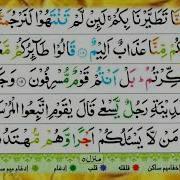 نَّا تَطَيَّرْنَا بِكُمْ لَئِنْ لَّمْ تَنْتَهُوْا لَنَرْجُمَنَّ
مِّنَّا عَذَابٌ اَلِيْمٌ ۝ قَالُوْا طَآئِرُكُمْ
كِّرْتُمْ بَلْ اَنْتُمْ قَوْمٌ مُّسْرِفُوْنَ ۝ وَجَ
دِيْنَةِ رَجُلٌ يَّسْعٰى قَالَ يٰقَوْمِ اتَّبِعُوا الْمُرْسَ
مَنْ لَّا يَسْـَٔلُكُمْ اَجْرًا وَّهُمْ مُّهْتَدُ
منزل ٥
ادغام قلب قلقلہ